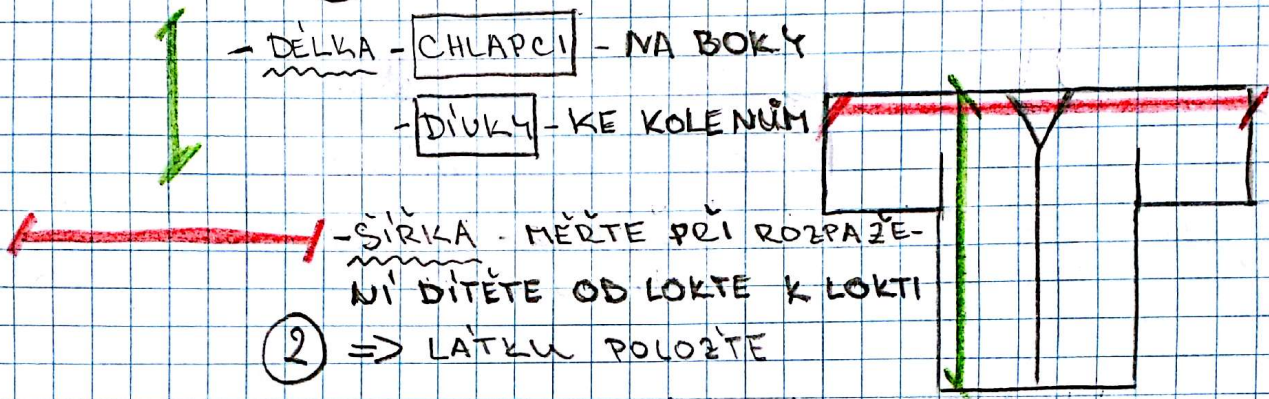 - DÉLKA - CHLAPCI - NA BOKY
- DÍVKY - KE KOLENŮM
- ŠÍŘKA - MĚŘTE PŘI ROZPAŽE-
NÍ DÍTĚTE OD LOKTE K LOKTI
2 => LÁTKU POLOŽTE